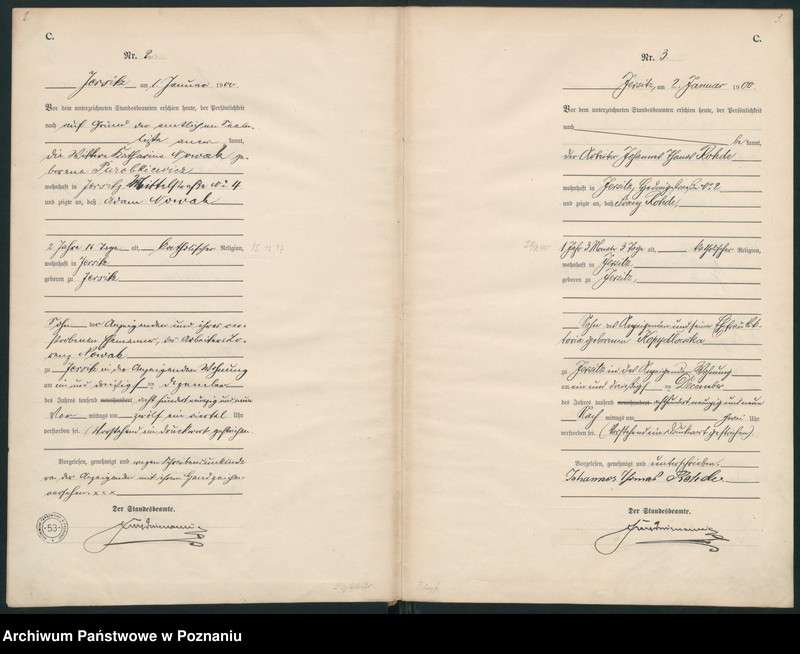 C.
Nr. 2
Jersitz am 1. Januar 1900.
Vor dem unterzeichneten Standesbeamten erschien heute, der Persönlichkeit
nach auf Grund der amtlichen
kannt,
die Wittwe Katharina Nowak ge-
borene
wohnhaft in Jersitz, Mittelstraße No 4
und zeigte an, daß Adam Nowak
2 Jahre alt, katholischer Religion,
wohnhaft in Jersitz
geboren zu Jersitz
Sohn der Anzeigenden und ihres ver-
storbenen Ehemannes, des Arbeiters Lo-
renz Nowak
zu Jersitz in der Anzeigenden Wohnung
am ein und dreißigsten Dezember
des Jahres tausend achthundert neunzig und neun
Vor mittags um zwölf ein viertel Uhr
verstorben sei. (Vorstehend ein Druckwort gestrichen.
Vorgelesen, genehmigt und wegen Schreibensunkunde
von der Anzeigenden mit ihrem Handzeichen
versehen. x x x
Der Standesbeamte.
53
3.
C.
Nr. 3
Jersitz, am 2. Januar 1900.
Vor dem unterzeichneten Standesbeamten erschien heute, der Persönlichkeit
nach
be kannt,
der Arbeiter Johannes Thomas Rohde
wohnhaft in Jersitz, Hedwigstraße No 2
und zeigte an, daß Franz Rohde,
1 Jahr 3 Monate 3 Tage alt, katholischer Religion,
wohnhaft in Jersitz,
geboren zu Jersitz,
Sohn des Anzeigenden und seiner Ehefrau Vik-
toria geborenen
zu Jersitz in des Anzeigenden Wohnung
am ein und dreißigsten December
des Jahres tausend achthundert neunzig und neun
Nach mittags um zwei Uhr
verstorben sei. (Vorstehend ein Druckwort gestrichen).
Vorgelesen, genehmigt und unterschrieben.
Johannes Thomas Rohde
Der Standesbeamte.
Archiwum Państwowe w Poznaniu